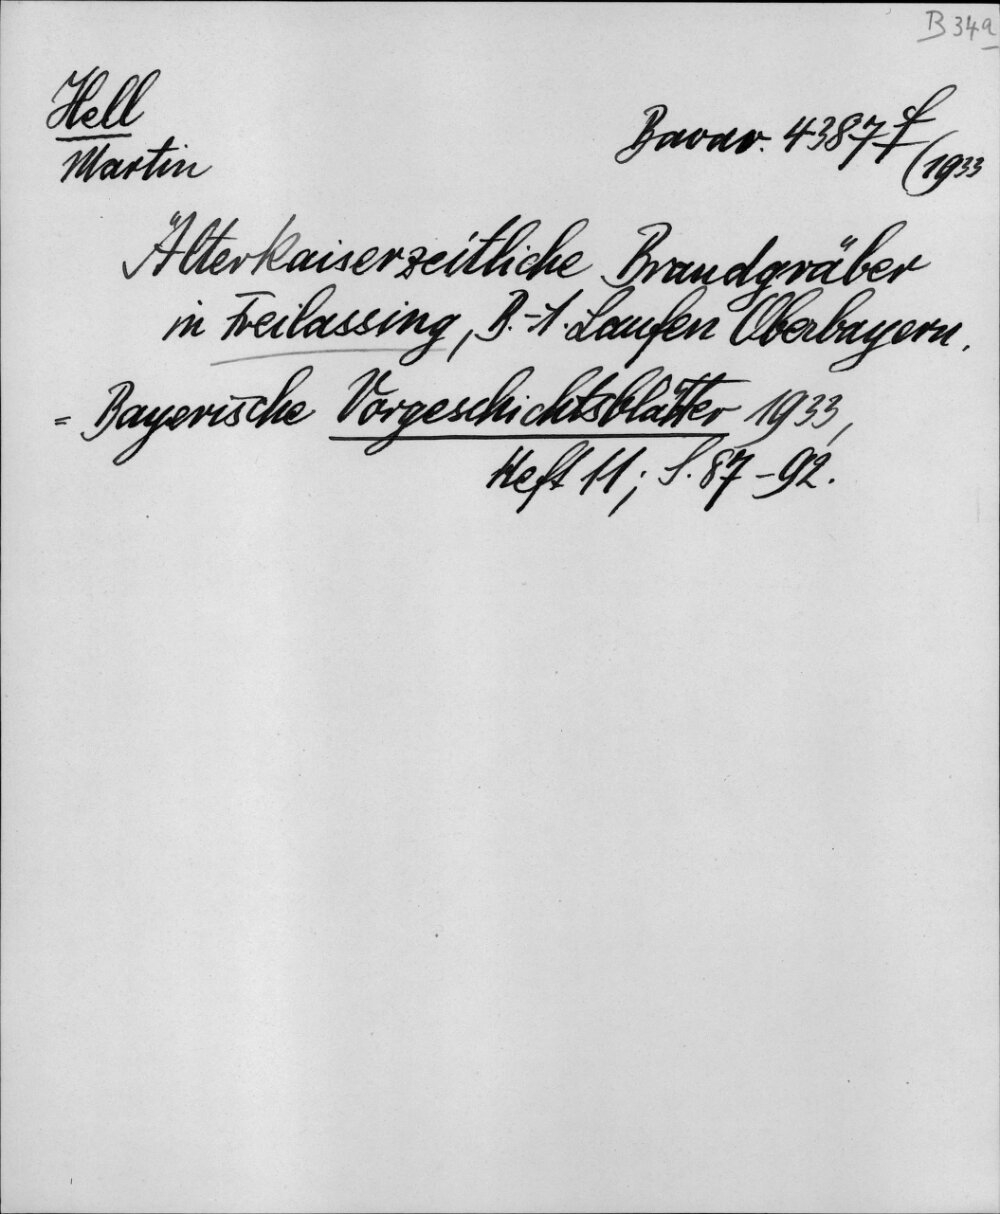 B 34a
Hell
Martin
Bavar. 4387 f
(1933
Älterkaiserzeitliche Brandgräber
in Freilassing, B.-A. Laufen Oberbayern.
= Bayerische Vorgeschichtsblätter 1933,
Heft 11; S. 87-92.